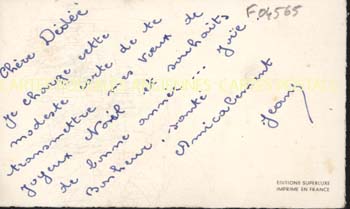 F04565
Chère Dédée
Je charge cette
modeste carte de te
transmettre mes vœux de
Joyeux Noël et souhaits
de bonne année...
Bonheur - santé - Joie
Amicalement
Jeany
EDITIONS SUPERLUXE
IMPRIME EN FRANCE